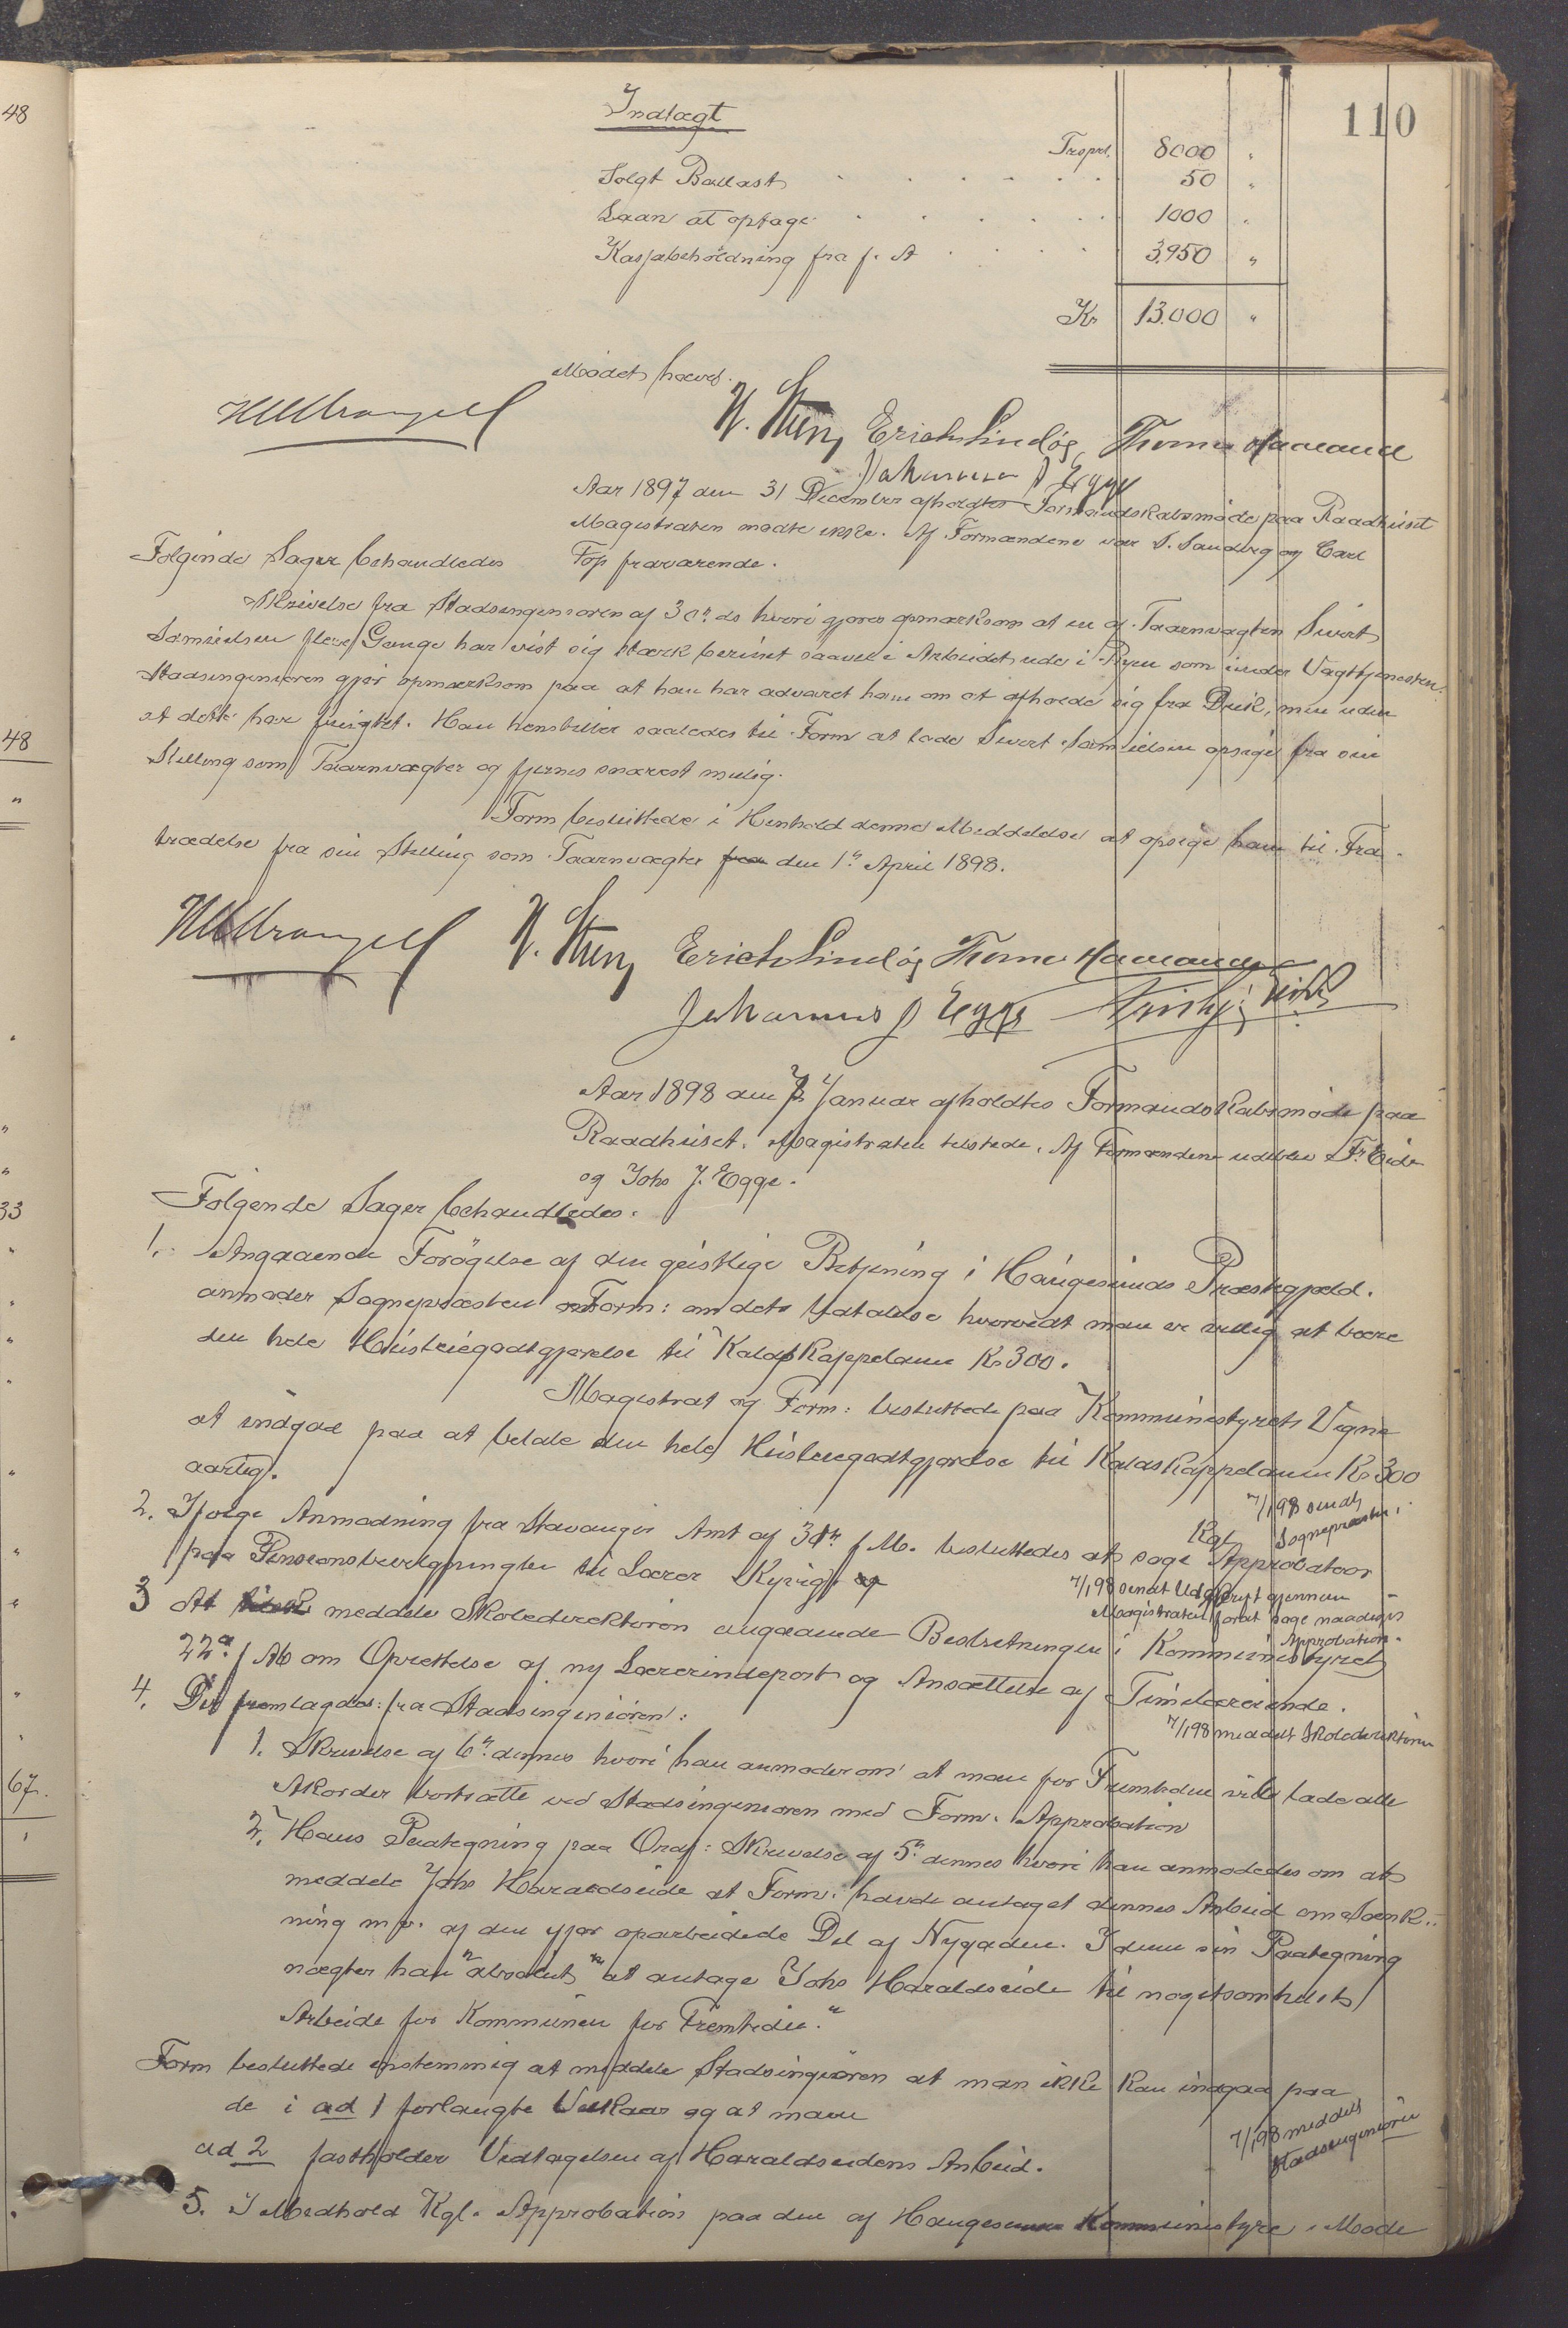 110
Indtægt
Trsprt. 8000 "
Solgt Ballast . . . . . . 50 "
Laan at optage . . . . . . 1000 "
Kassabeholdning fra f. A . . . . 3.950 "
Kr 13.000 "
Mødet hævet.
H. Steen, Erich Lindøe, Thomas
Johannes J Egge
Aar 1897 den 31 December afholdtes Formandskabsmøde paa Raadhuset
Magistraten mødte ikke. Af Formændene var S. Sandberg og Carl
Følgende Sager behandledes
fraværende.
Skrivelse fra Stadsingeniøren af 30te ds hvori gjøres opmærksom at en af Taarnvagten Sivert
Samuelsen flere Gange har vist sig stærk beruset saavel i Arbeidet ude i Byen som under Vagttjenesten.
Stadsingeniøren gjør opmærksom paa at han har advaret ham om at afholde sig fra Drik, men uden
at dette har frugtet. Han henstiller saaledes til Form at lade Sivert Samuelsen opsige fra sin
Stilling som Taarnvægter og fjernes snarest mulig.
Form besluttede i Henhold denne Meddelelse at opsige ham til Fra-
trædelse fra sin Stilling som Taarnvægter fra den 1ste April 1898.
H. Steen, Erich Lindøe Thomas
Johannes J Egge
Aar 1898 den 7 Januar afholdtes Formandskabsmøde paa
Raadhuset. Magistraten tilstede. Af Formændene udeblev Fr. Eide
og Johs J. Egge.
Følgende Sager behandledes.
1. Angaaende Forøgelse af den geistlige Betjening i Haugesunds Præstegjæld.
anmoder Sognepræsten Form: om dets Udtalelse hvorvidt man er villig at bære
den hele Husleiegodtgjørelse til Kaldskappelanen Kr 300.
Magistrat og Form: besluttede paa Kommunestyrets Vegne
at indgaa paa at betale den hele Husleiegodtgjørelse til Kaldskappelanen Kr 300
aarlig.
7/1 98 sendt
Sognepræsten.
2. Ifølge Anmodning fra Stavanger Amt af 31te f. M. besluttedes at søge Kgl Approbation
paa Pensionsbevilgningen til Lærer Kyvig
7/1 98 sendt Udskrift gjennem
Magistraten forat søge naadigst
Approbation.
3 At meddele Skoledirektøren angaaende Beslutningen i Kommunestyret
22de f. M om Oprettelse af ny Lærerindepost og Ansættelse af Timelærerinde.
7/1 98 meddelt Skoledirektøren
4. Det fremlagdes fra Stadsingeniøren:
1. Skrivelse af 6te dennes hvori han anmoder om at man for Fremtiden vilde lade alle
Akorder bortsætte ved Stadsingeniøren med Form. Approbation
2. Hans Paategning paa Ordf: Skrivelse af 5te dennes hvori han anmodedes om at
meddele Johs Haraldseide at Form: havde antaget dennes Anbud om Sænk-
ning m.v. af den ifjor oparbeidede Del af Nygaden. I denne sin Paategning
nægter han "absolut at antage Johs Haraldseide til nogetsomhelst
Arbeide for Kommunen for Fremtiden."
Form besluttede enstemmig at meddele Stadsingeniøren at man ikke kan indgaa paa
de i ad 1 forlangte Vilkaar og at man
ad 2 fastholder Vedtagelsen af Haraldseidens Anbud.
7/1 98 meddelt
Stadsingeniøren
5. I Medhold Kgl. Approbation paa den af Haugesunds Kommunestyre i Møde